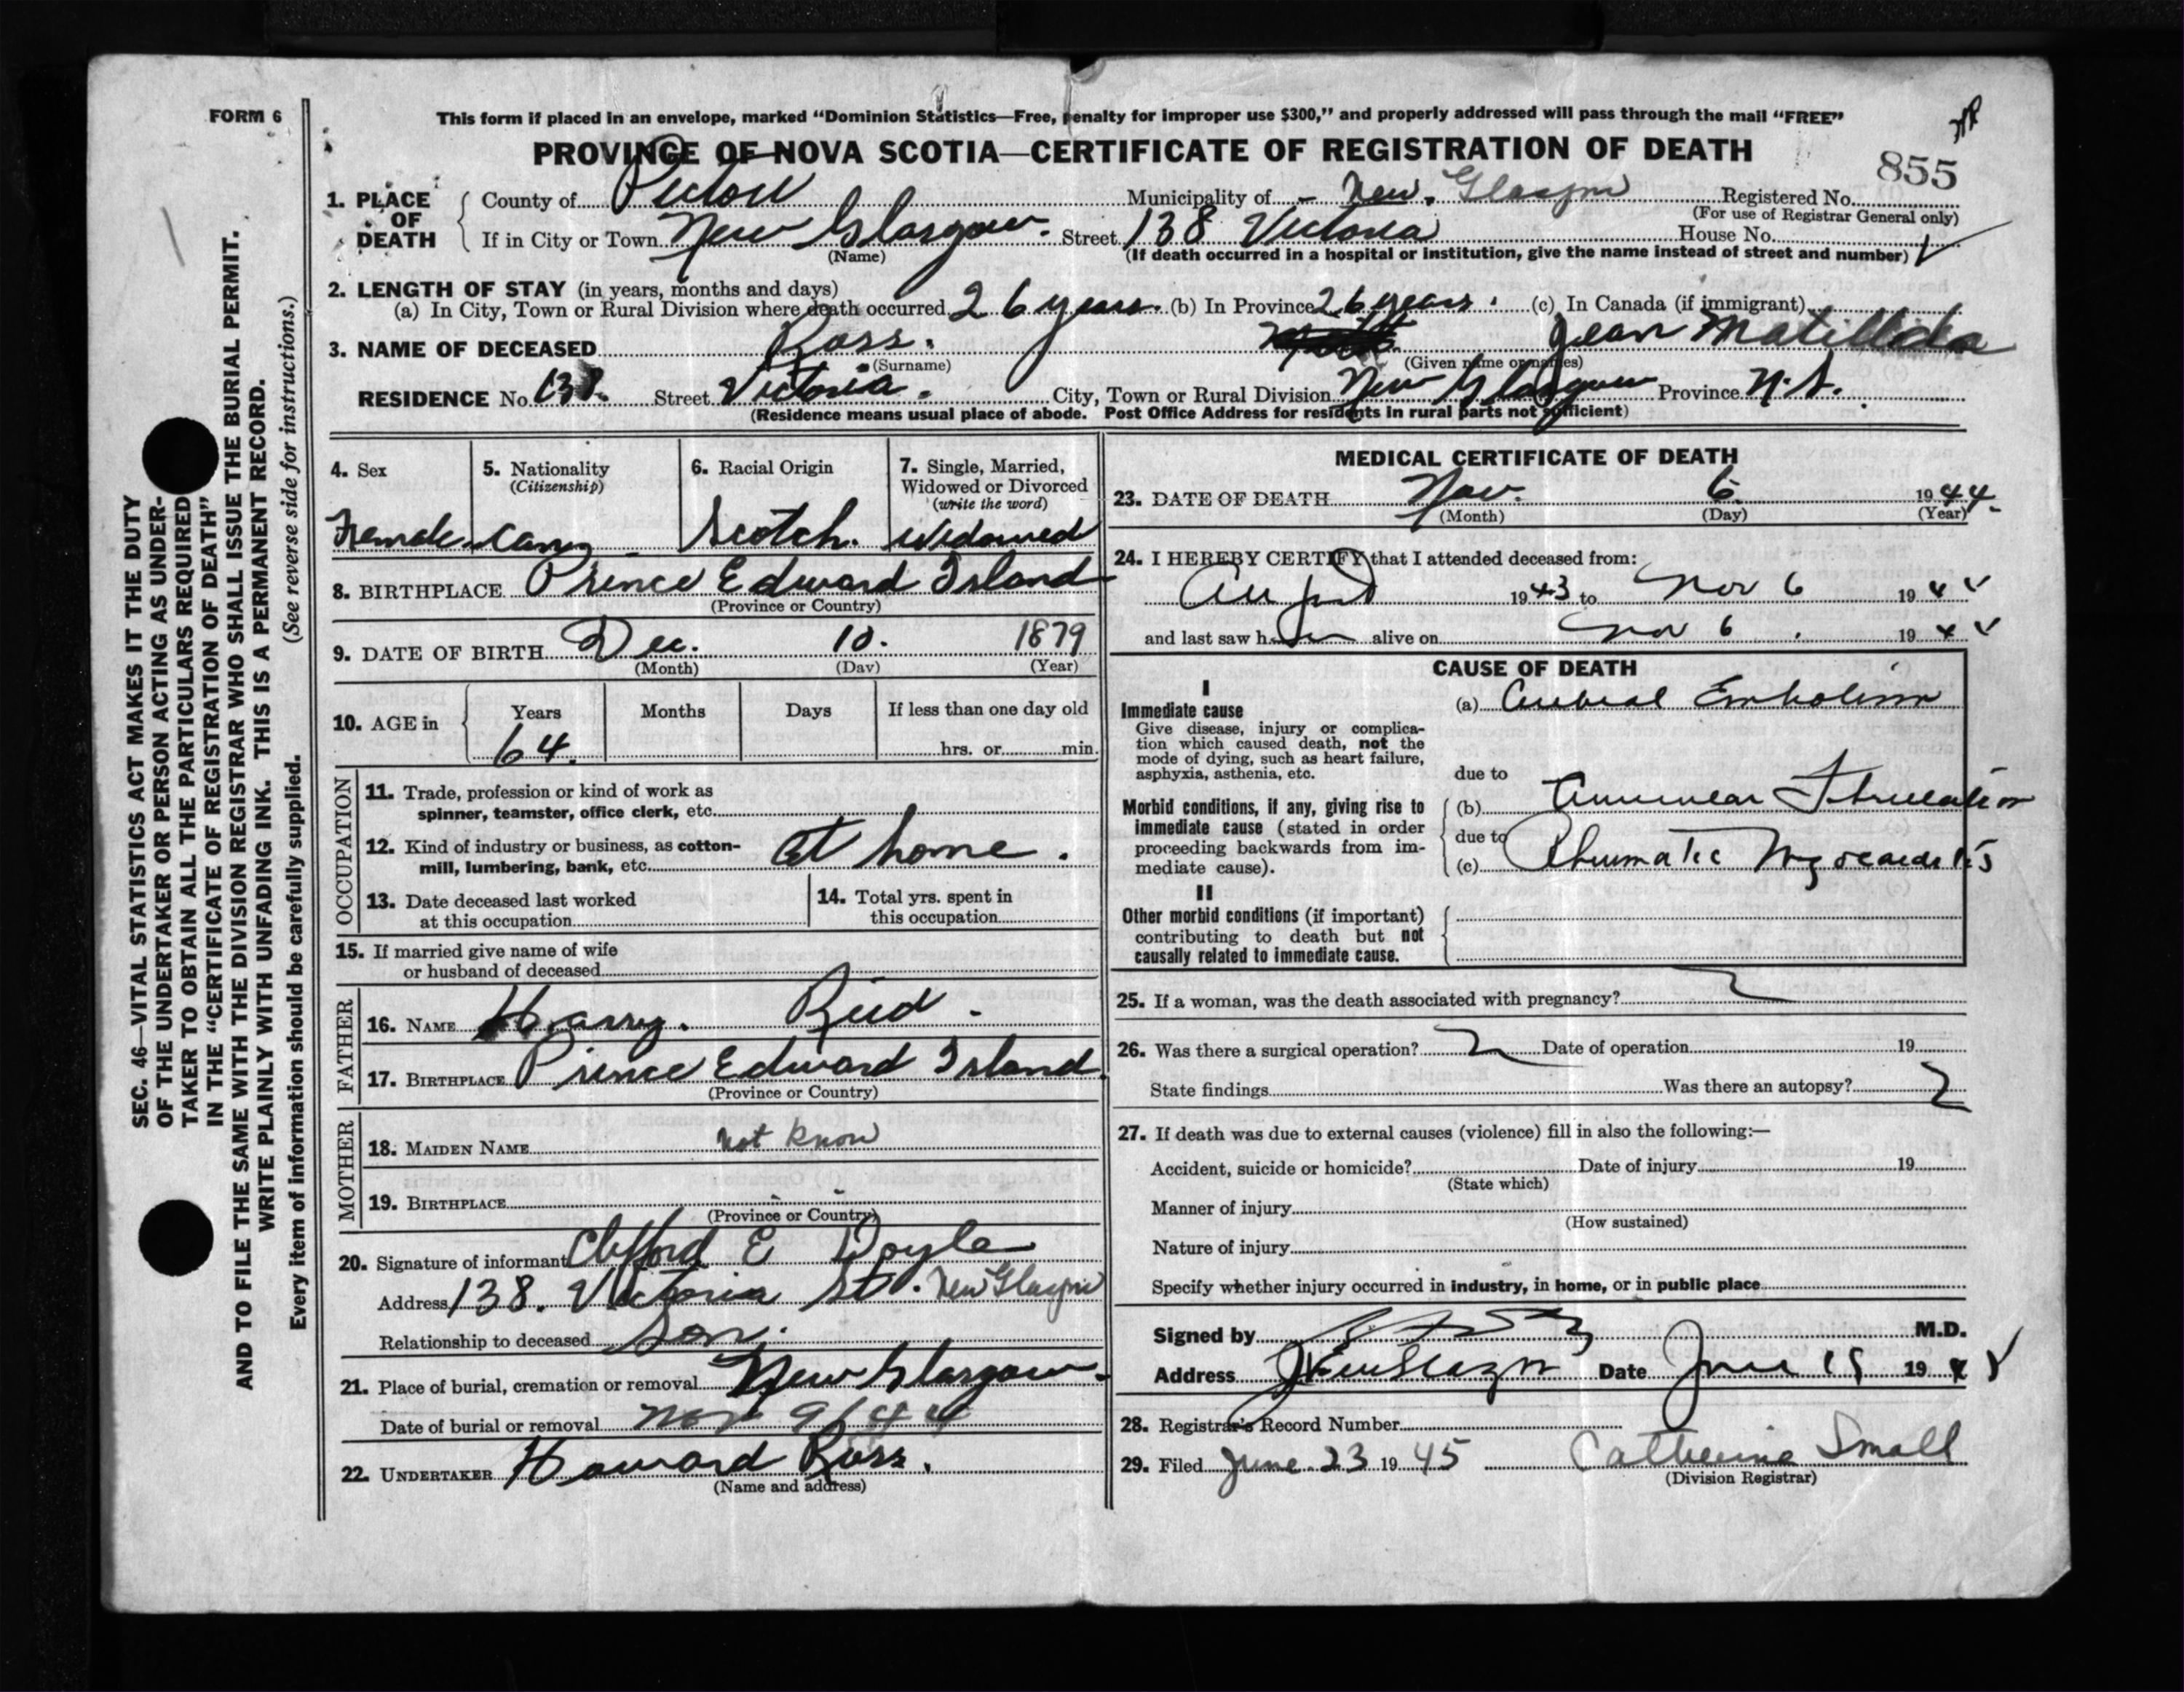 FORM 6
This form if placed in an envelope, marked "Dominion Statistics—Free, penalty for improper use $300," and properly addressed will pass through the mail "FREE"
PROVINCE OF NOVA SCOTIA—CERTIFICATE OF REGISTRATION OF DEATH
855
1. PLACE OF DEATH
County of Pictou Municipality of New Glasgow Registered No.
(For use of Registrar General only)
If in City or Town New Glasgow. Street 138 Victoria House No.
(Name) (If death occurred in a hospital or institution, give the name instead of street and number)
2. LENGTH OF STAY (in years, months and days)
(a) In City, Town or Rural Division where death occurred 26 years. (b) In Province 26 years. (c) In Canada (if immigrant)
3. NAME OF DECEASED Ross. Jean Matillda
(Surname) (Given name or names)
RESIDENCE No. 138. Street Victoria. City, Town or Rural Division New Glasgow Province N.S.
(Residence means usual place of abode. Post Office Address for residents in rural parts not sufficient)
4. Sex
Female
5. Nationality
(Citizenship)
6. Racial Origin
Scotch.
7. Single, Married,
Widowed or Divorced
(write the word)
Widowed
8. BIRTHPLACE Prince Edward Island
(Province or Country)
9. DATE OF BIRTH Dec. 10. 1879
(Month) (Day) (Year)
10. AGE in Years Months Days If less than one day old
64. hrs. or min.
OCCUPATION
11. Trade, profession or kind of work as
spinner, teamster, office clerk, etc.
12. Kind of industry or business, as cotton-
mill, lumbering, bank, etc. at home.
13. Date deceased last worked
at this occupation
14. Total yrs. spent in
this occupation
15. If married give name of wife
or husband of deceased
FATHER
16. NAME Harry. Reid.
17. BIRTHPLACE Prince Edward Island
(Province or Country)
MOTHER
18. MAIDEN NAME not know
19. BIRTHPLACE
(Province or Country)
20. Signature of informant Clifford E Doyle
Address 138. Victoria St. New Glasgow
Relationship to deceased Son.
21. Place of burial, cremation or removal New Glasgow.
Date of burial or removal Nov 9/44
22. UNDERTAKER Howard Ross.
(Name and address)
MEDICAL CERTIFICATE OF DEATH
23. DATE OF DEATH Nov. 6 1944.
(Month) (Day) (Year)
24. I HEREBY CERTIFY that I attended deceased from:
August 1943 to Nov 6 1944
and last saw her alive on Nov 6 1944
CAUSE OF DEATH
I
Immediate cause
Give disease, injury or complica-
tion which caused death, not the
mode of dying, such as heart failure,
asphyxia, asthenia, etc.
(a) Cerebral Embolism
due to
Morbid conditions, if any, giving rise to
immediate cause (stated in order
proceeding backwards from im-
mediate cause).
(b) Auricular Fibrillation
due to
(c) Rheumatic Myocarditis
II
Other morbid conditions (if important)
contributing to death but not
causally related to immediate cause.
25. If a woman, was the death associated with pregnancy?
26. Was there a surgical operation? Date of operation 19
State findings Was there an autopsy?
27. If death was due to external causes (violence) fill in also the following:—
Accident, suicide or homicide? Date of injury 19
(State which)
Manner of injury
(How sustained)
Nature of injury
Specify whether injury occurred in industry, in home, or in public place
Signed by M.D.
Address New Glasgow Date June 19
28. Registrar's Record Number
29. Filed June 23 1945 Catherine Small
(Division Registrar)
SEC. 46—VITAL STATISTICS ACT MAKES IT THE DUTY
OF THE UNDERTAKER OR PERSON ACTING AS UNDER-
TAKER TO OBTAIN ALL THE PARTICULARS REQUIRED
IN THE "CERTIFICATE OF REGISTRATION OF DEATH"
AND TO FILE THE SAME WITH THE DIVISION REGISTRAR WHO SHALL ISSUE THE BURIAL PERMIT.
WRITE PLAINLY WITH UNFADING INK. THIS IS A PERMANENT RECORD.
Every item of information should be carefully supplied. (See reverse side for instructions.)